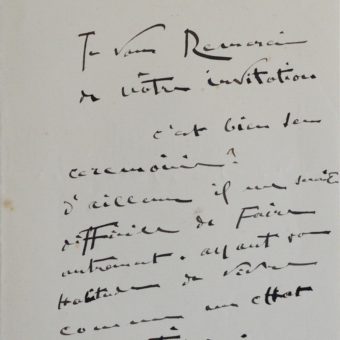 Je vous Remercie
de vôtre invitation
c'est bien sans
ceremonie?
d'ailleurs il me serait
difficile de Faire
autrement. ayant
Habitude de vivre
comme un